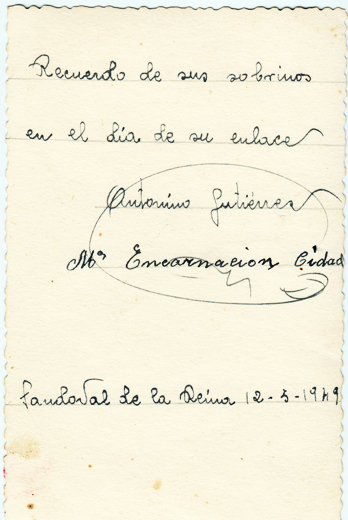 Recuerdo de sus sobrinos
en el día de su enlace
Antonino Gutiérrez
Mª Encarnacion Cidad
Sandoval de la Reina 12-5-1949